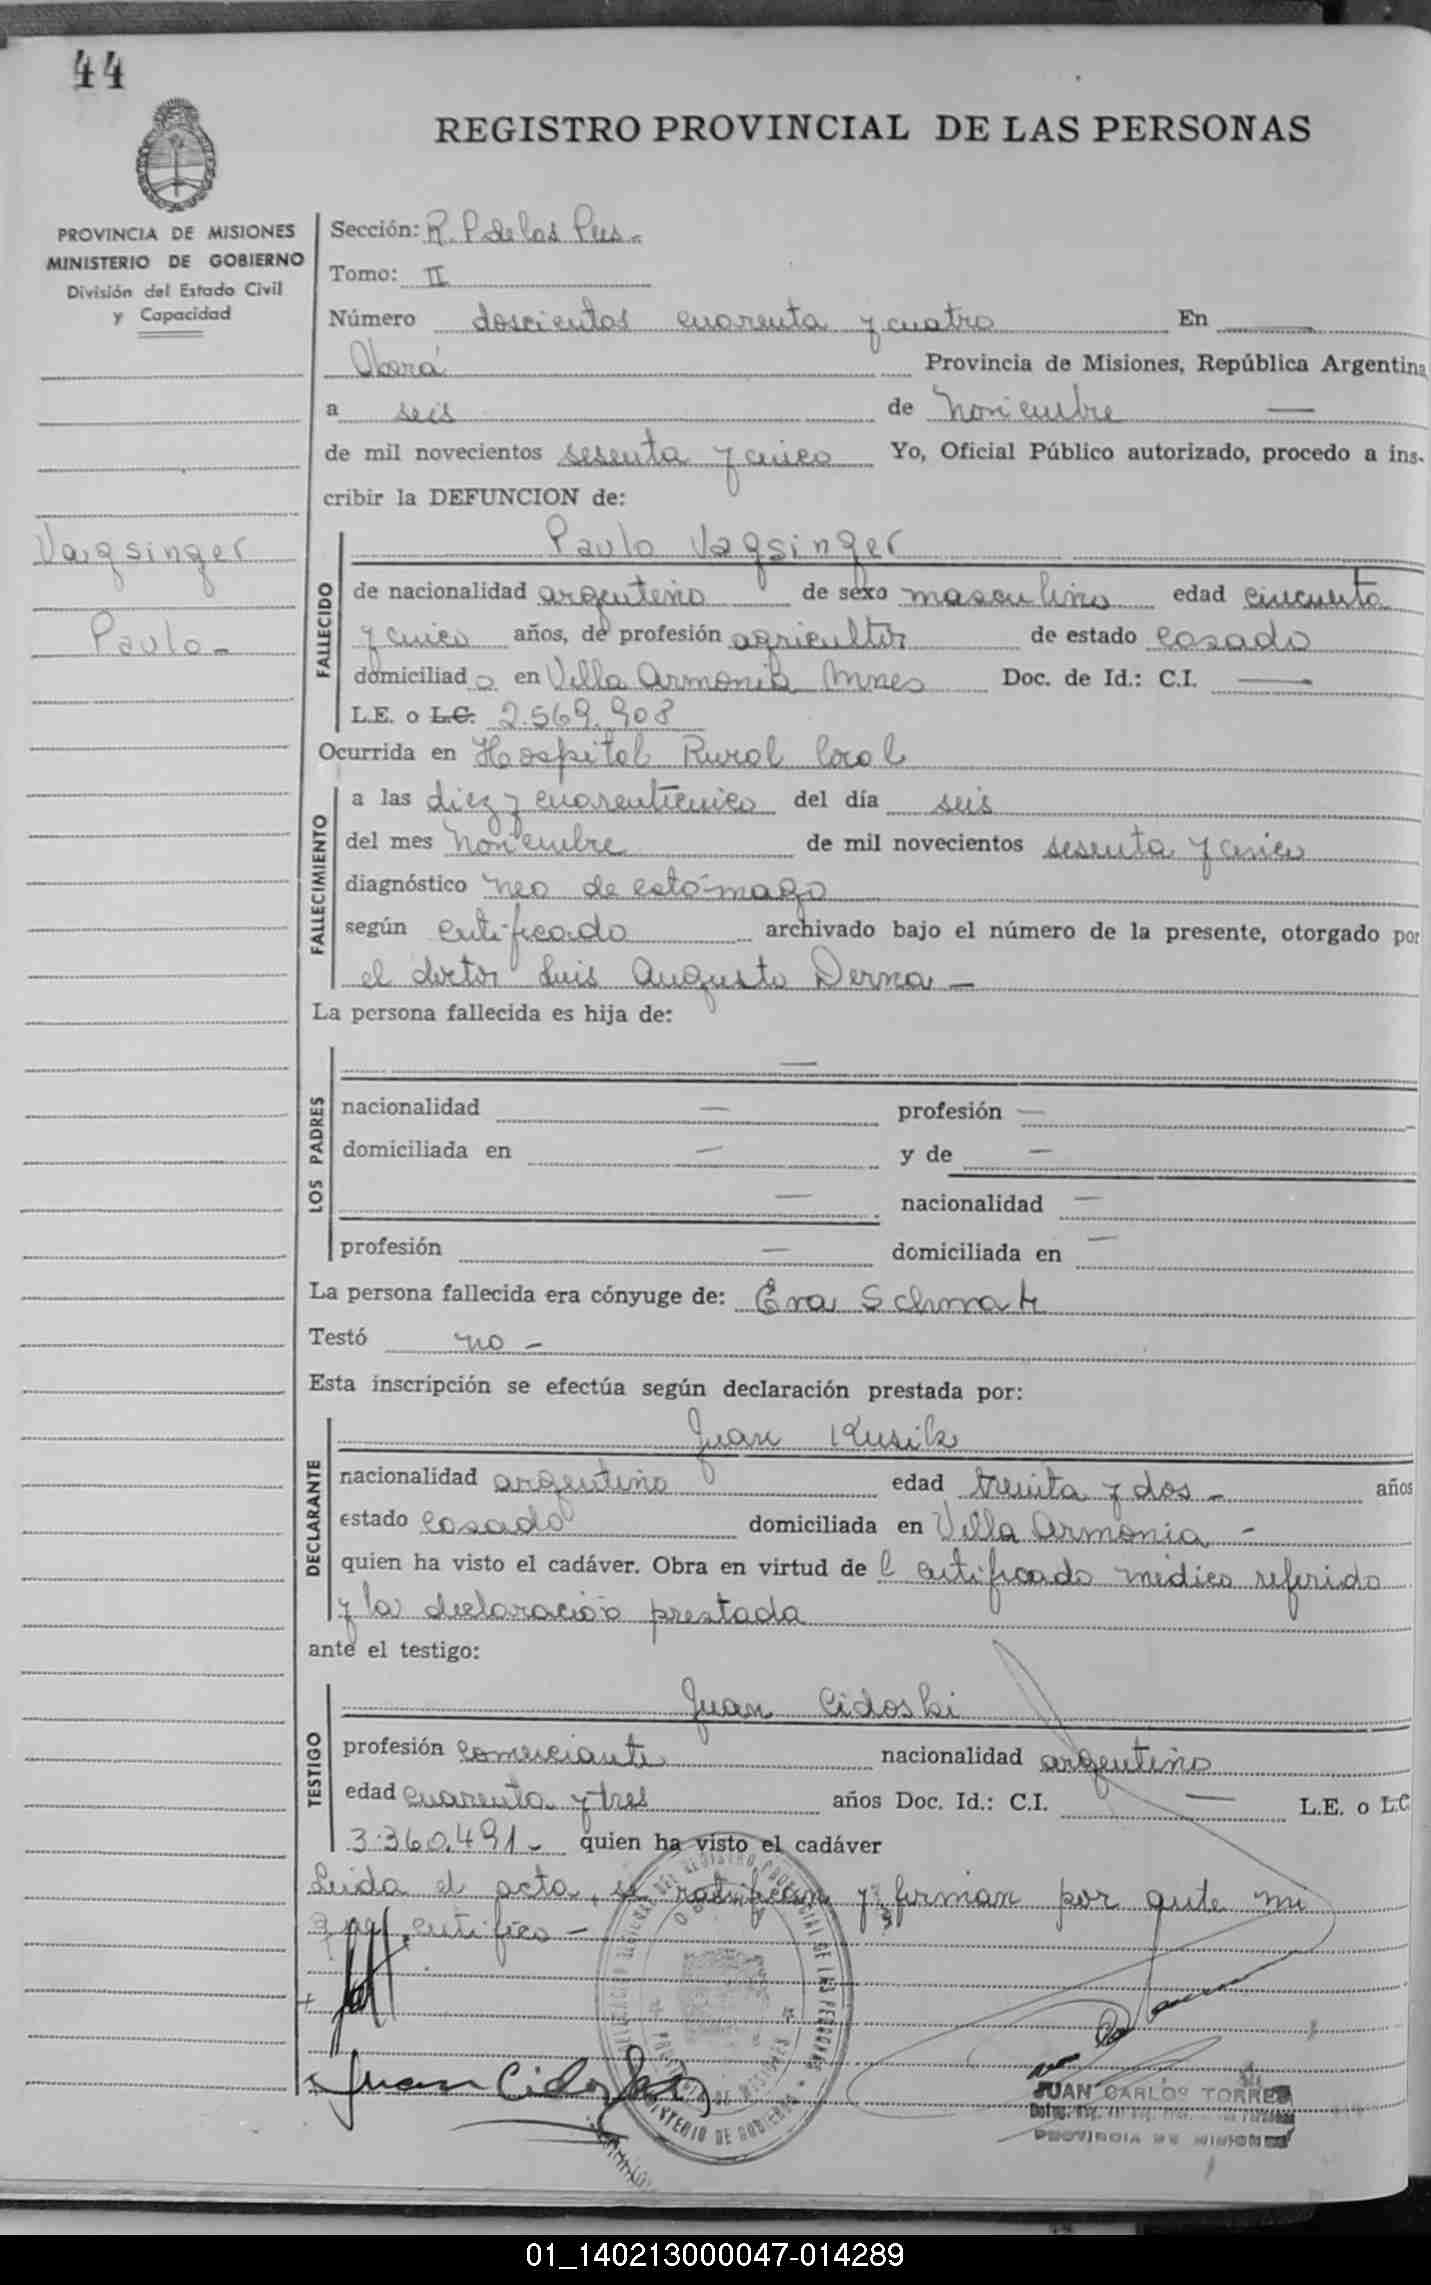 44
REGISTRO PROVINCIAL DE LAS PERSONAS
PROVINCIA DE MISIONES
MINISTERIO DE GOBIERNO
División del Estado Civil
y Capacidad
Vagsinger
Paulo -
Sección: R. P de las Pers.
Tomo: II
Número doscientos cuarenta y cuatro En —
Oberá Provincia de Misiones, República Argentina
a seis de noviembre —
de mil novecientos sesenta y cinco Yo, Oficial Público autorizado, procedo a ins-
cribir la DEFUNCION de:
FALLECIDO
Paulo Vagsinger
de nacionalidad argentino de sexo masculino edad cincuenta
y cinco años, de profesión agricultor de estado casado
domiciliado en Villa Armonia Mnes Doc. de Id.: C.I. —
L.E. o L.C. 2.569.908
Ocurrida en Hospital Rural local
FALLECIMIENTO
a las diez y cuarenticinco del día seis
del mes noviembre de mil novecientos sesenta y cinco
diagnóstico neo de estómago
según certificado archivado bajo el número de la presente, otorgado por
el doctor Luis Augusto Derna -
La persona fallecida es hija de:
LOS PADRES
—
nacionalidad — profesión —
domiciliada en — y de —
— nacionalidad —
profesión — domiciliada en —
La persona fallecida era cónyuge de: Eva
Testó no -
Esta inscripción se efectúa según declaración prestada por:
DECLARANTE
Juan Kusik
nacionalidad argentino edad treinta y dos - años
estado casado domiciliada en Villa Armonia -
quien ha visto el cadáver. Obra en virtud del certificado médico referido
y la declaración prestada
ante el testigo:
TESTIGO
Juan Cidoski
profesión comerciante nacionalidad argentino
edad cuarenta y tres años Doc. Id.: C.I. — L.E. o L.C
3.360.491- quien ha visto el cadáver
Leida el acta, se ratifican y firman por ante mi
que certifico -
Juan Cidoski
JUAN CARLOS TORRES
PROVINCIA DE MISIONES
01_140213000047-014289